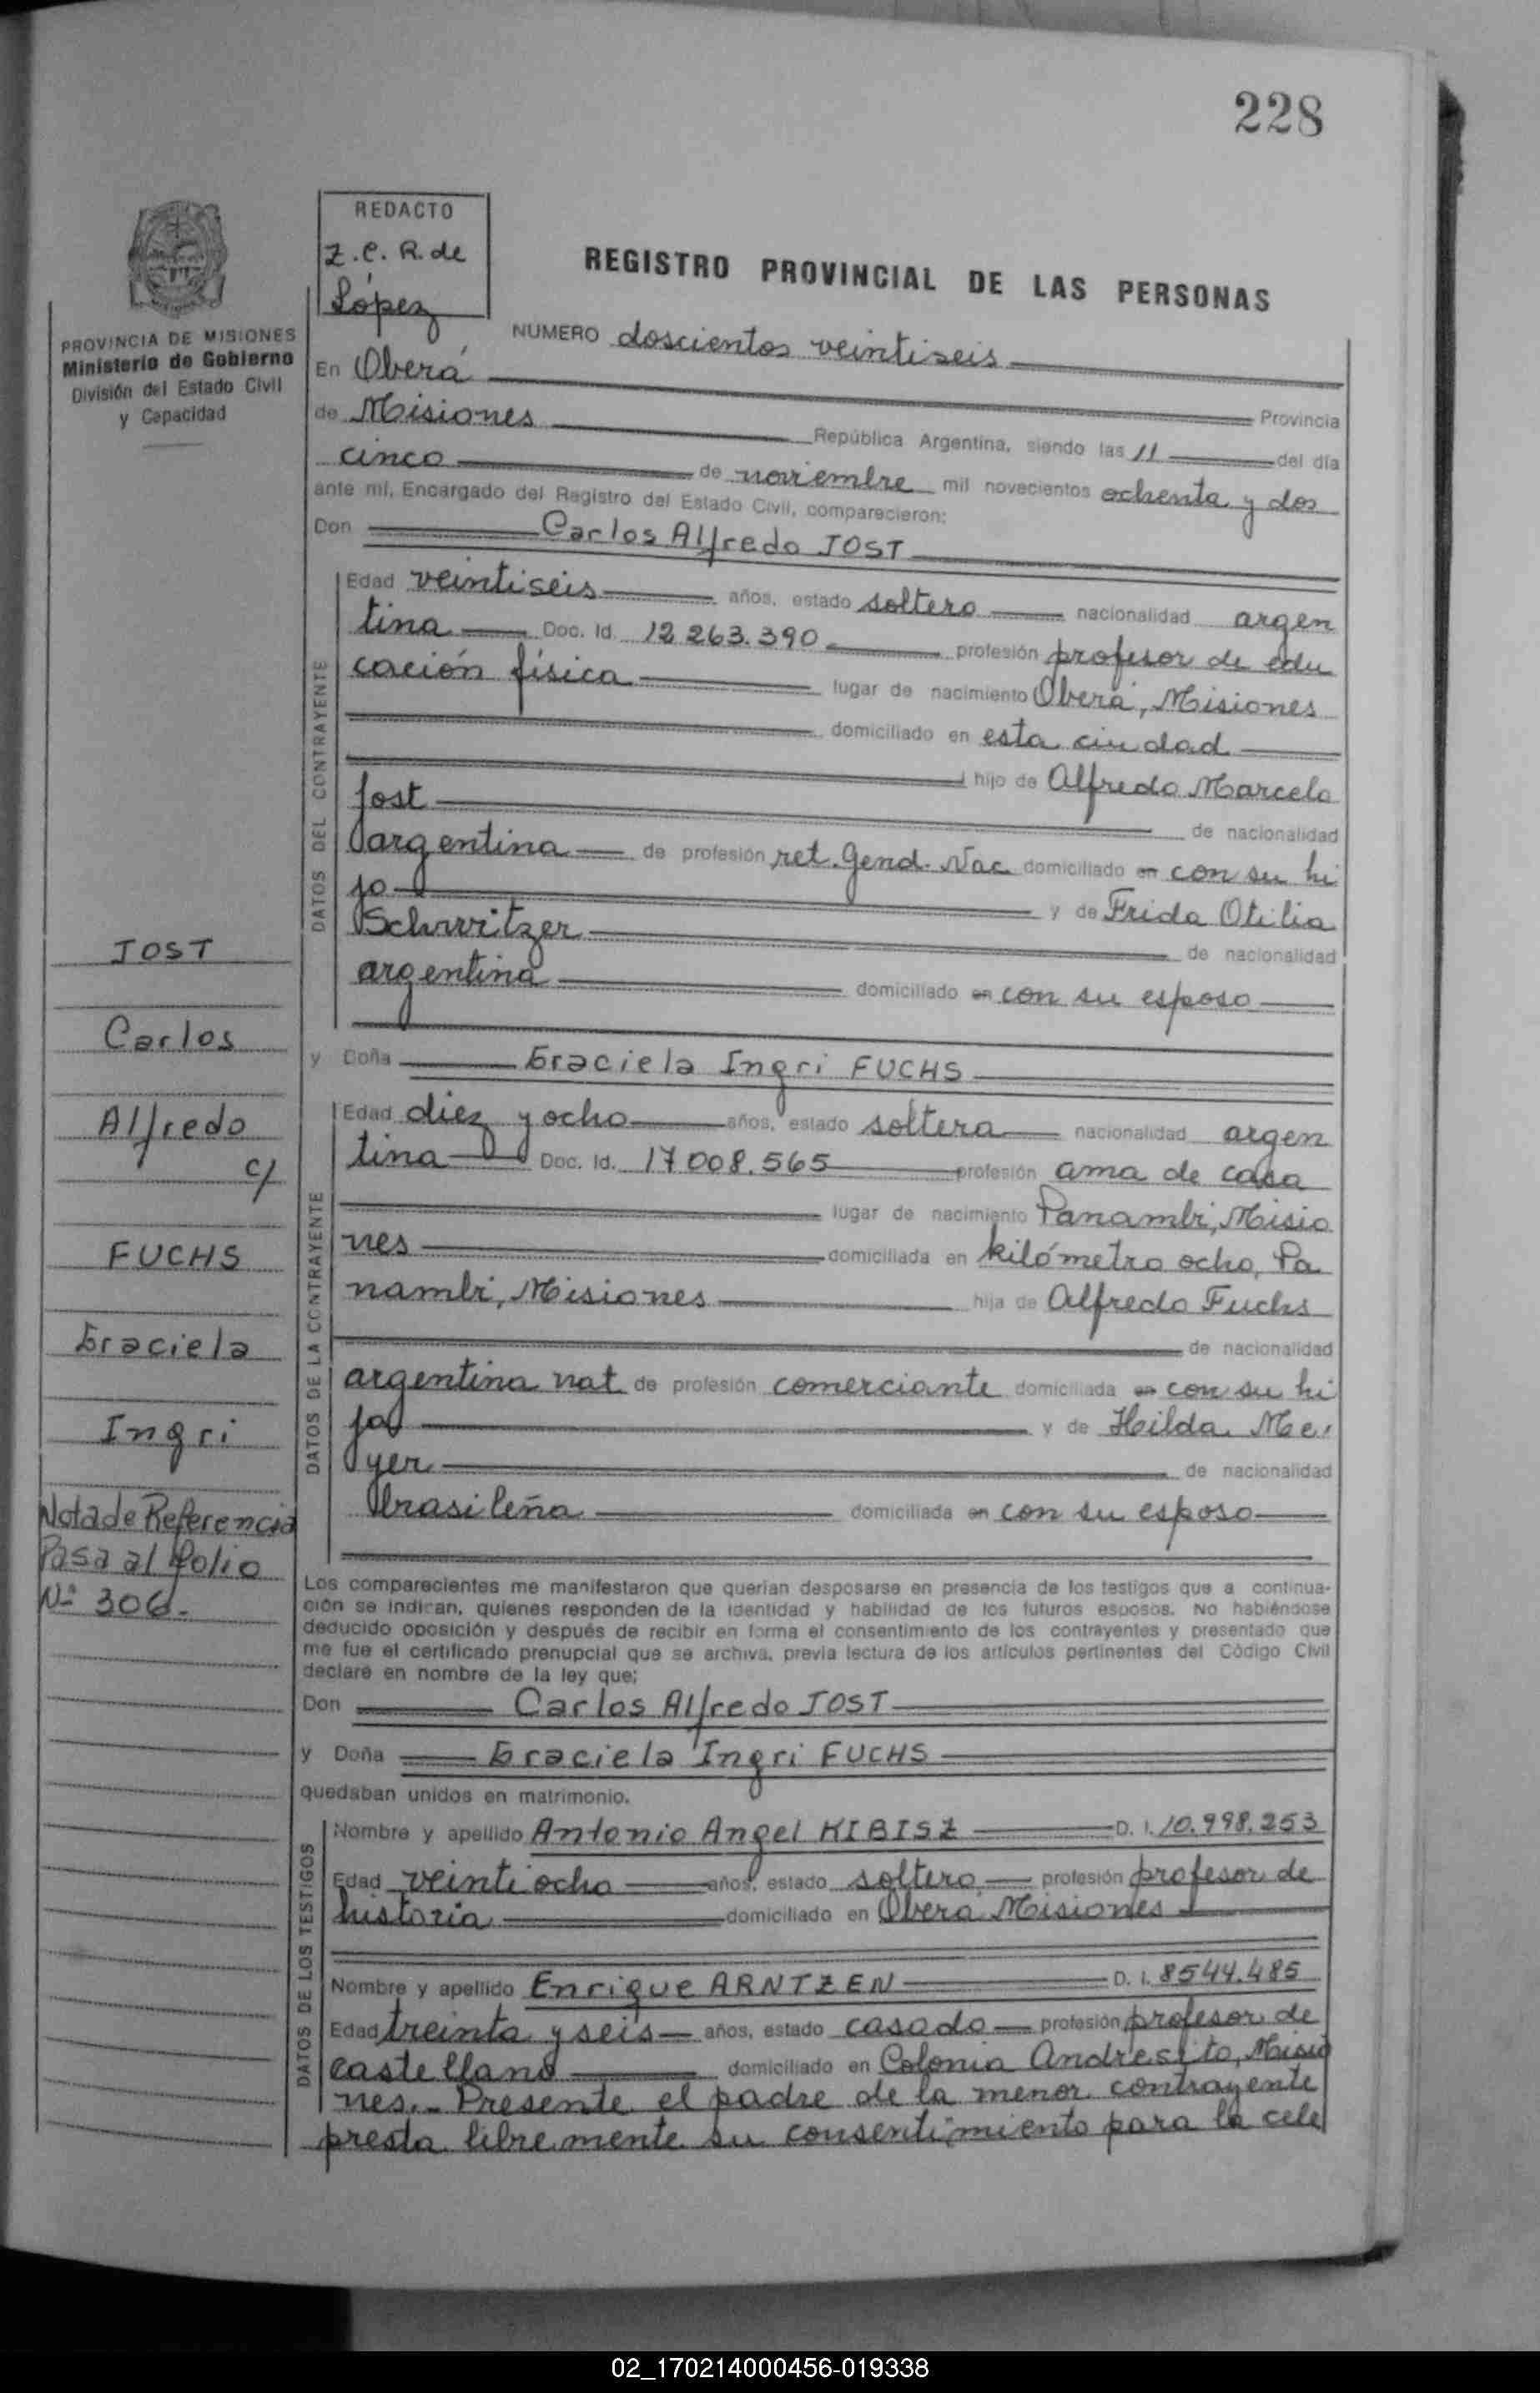 228
REDACTO
Z.C.R. de
López
REGISTRO PROVINCIAL DE LAS PERSONAS
PROVINCIA DE MISIONES
Ministerio de Gobierno
División del Estado Civil
y Capacidad
NUMERO doscientos veintiseis
En Oberá
Provincia
de Misiones República Argentina, siendo las 11 del día
cinco de noviembre mil novecientos ochenta y dos
ante mí, Encargado del Registro del Estado Civil, comparecieron:
Don Carlos Alfredo JOST
DATOS DEL CONTRAYENTE
Edad veintiseis años, estado soltero nacionalidad argen
tina Doc. Id. 12 263.390 profesión profesor de edu
cación física lugar de nacimiento Oberá, Misiones
domiciliado en esta ciudad
hijo de Alfredo Marcelo
Jost de nacionalidad
argentina de profesión ret. Gend. Nac domiciliado en con su hi
jo y de Frida Otilia
Schwitzer de nacionalidad
argentina domiciliado en con su esposo
y Doña Graciela Ingri FUCHS
DATOS DE LA CONTRAYENTE
Edad diez y ocho años, estado soltera nacionalidad argen
tina Doc. Id. 17 008.565 profesión ama de casa
lugar de nacimiento Panambi, Misio
nes domiciliada en kilómetro ocho, Pa
nambi, Misiones hija de Alfredo Fuchs
de nacionalidad
argentina nat de profesión comerciante domiciliada en con su hi
ja y de Hilda Me
yer de nacionalidad
brasileña domiciliada en con su esposo
Los comparecientes me manifestaron que querían desposarse en presencia de los testigos que a continua-
ción se indican, quienes responden de la identidad y habilidad de los futuros esposos. No habiéndose
deducido oposición y después de recibir en forma el consentimiento de los contrayentes y presentado que
me fue el certificado prenupcial que se archiva, previa lectura de los artículos pertinentes del Código Civil
declaré en nombre de la ley que;
Don Carlos Alfredo JOST
y Doña Graciela Ingri FUCHS
quedaban unidos en matrimonio.
DATOS DE LOS TESTIGOS
Nombre y apellido Antonio Angel KIBISZ D. I. 10.998.253
Edad veintiocho años, estado soltero profesión profesor de
historia domiciliado en Oberá Misiones
Nombre y apellido Enrique ARNTZEN D. I. 8544.485
Edad treinta y seis años, estado casado profesión profesor de
castellano domiciliado en Colonia Andresito, Misio
nes.- Presente el padre de la menor contrayente
presta libremente su consentimiento para la cele
JOST
Carlos
Alfredo
c/
FUCHS
Graciela
Ingri
Nota de Referencia
Pasa al folio
Nº 306.-
02_170214000456-019338